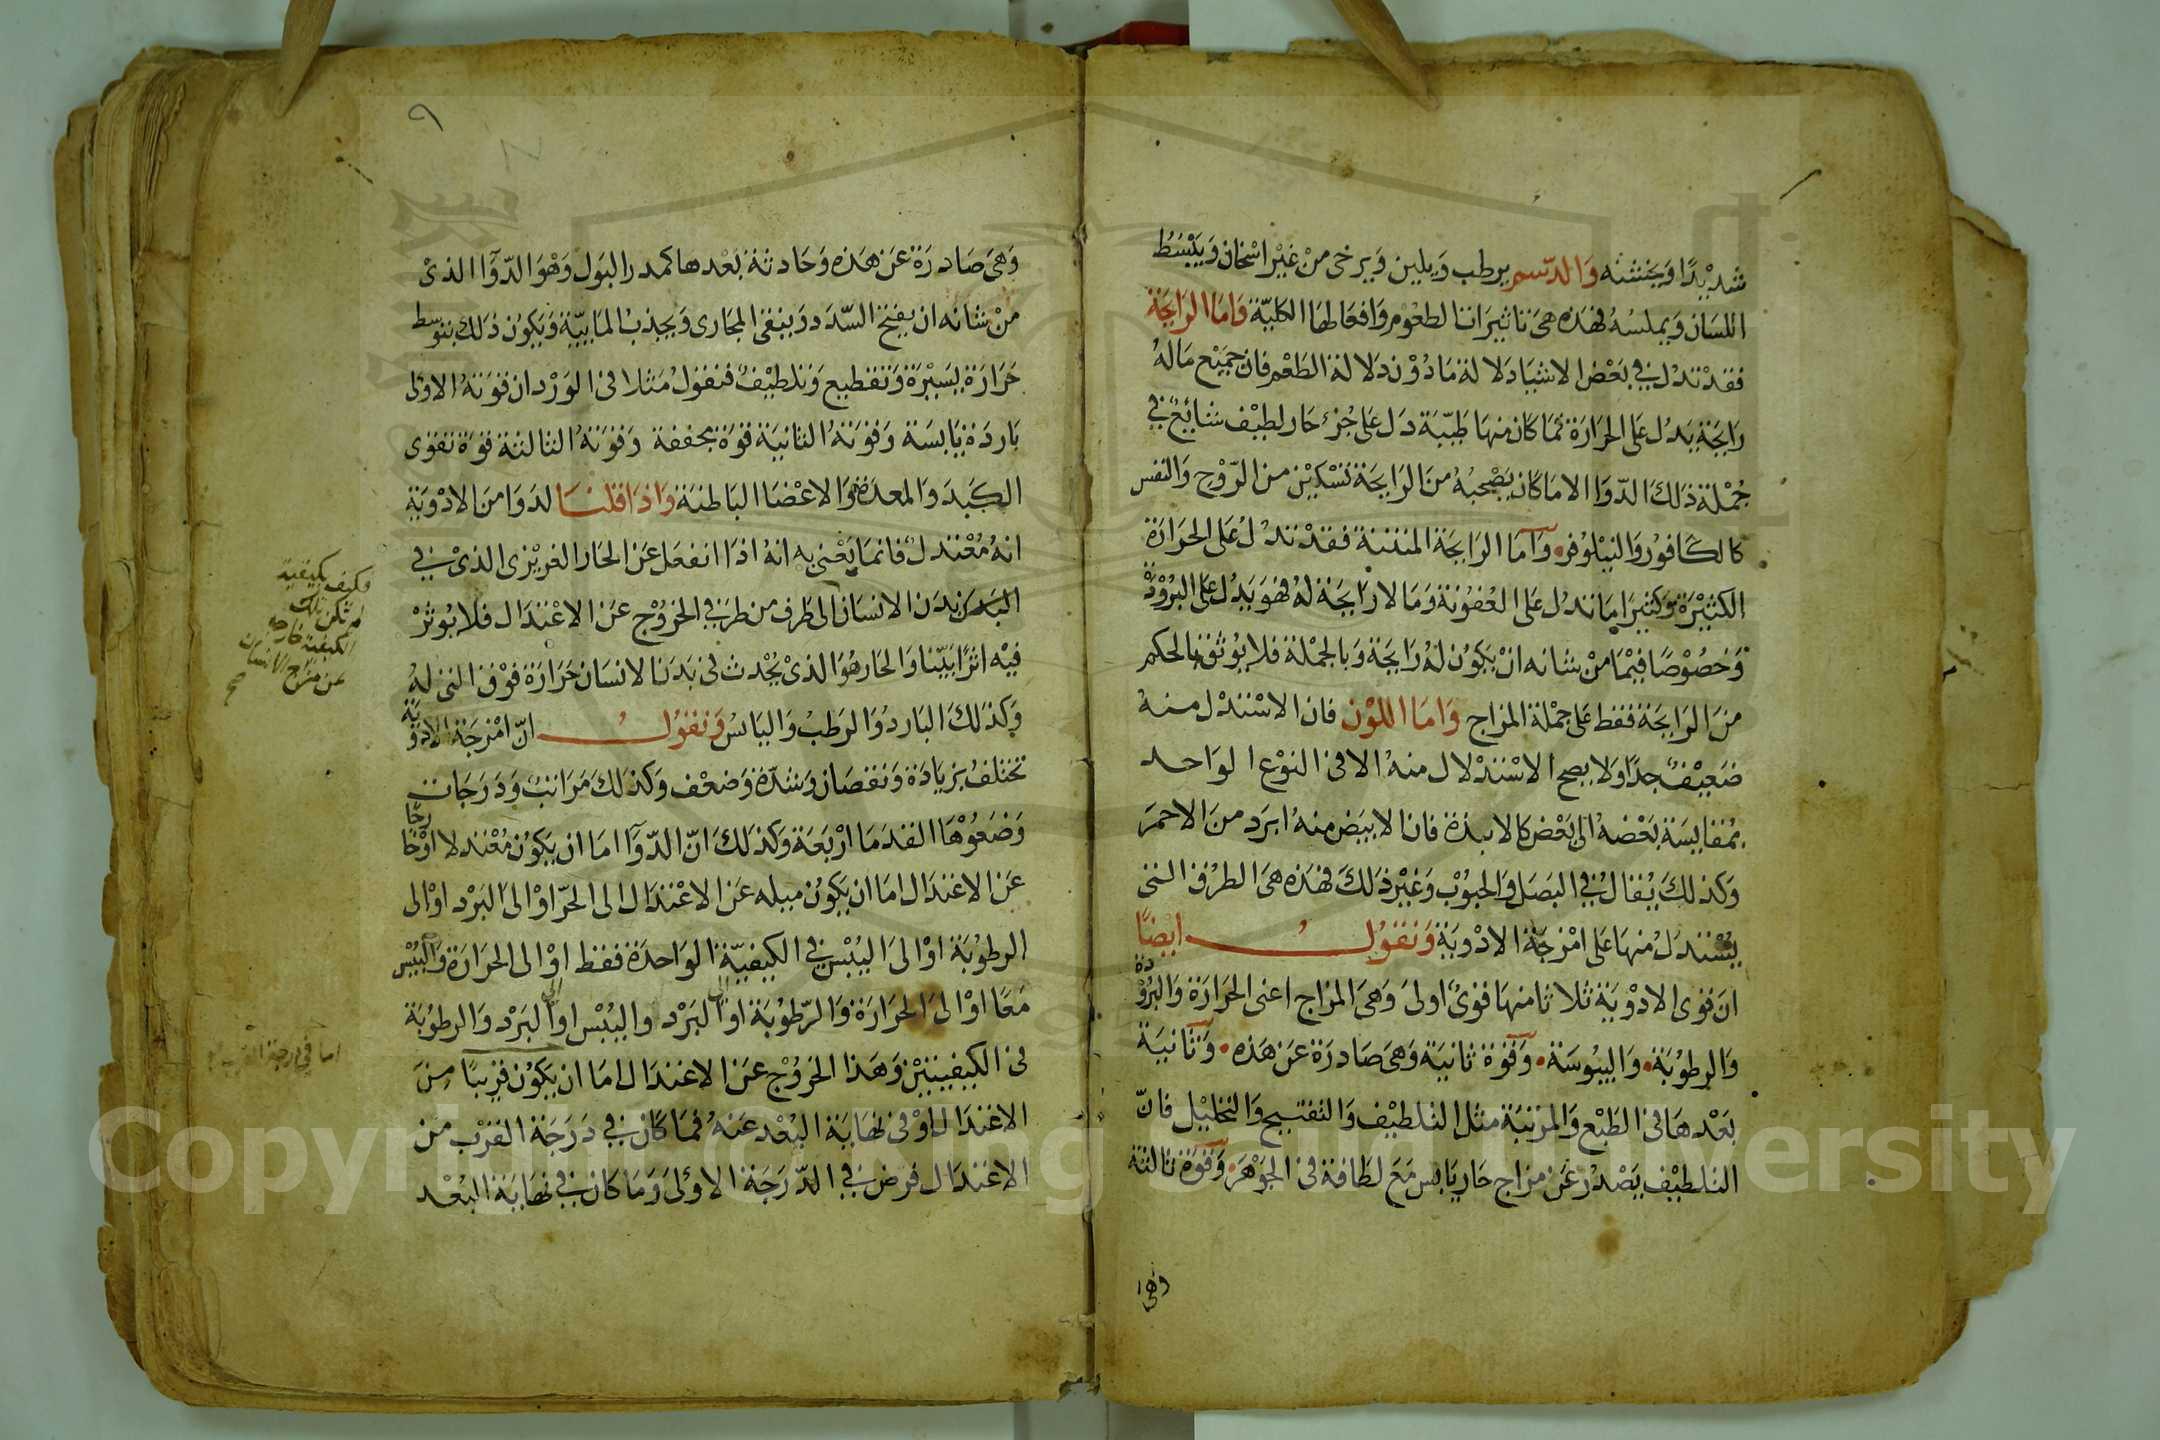 شديدًا ويخشنه والدسم يرطب ويلين ويرخي من غير اسخان ويبسط
اللسان ويملسه فهذه هي تاثيرات الطعوم وافعالها الكلية واما الرايحة
فقد تدل في بعض الاشيا دلالة ما دون دلالة الطعم فان جميع ماله
رايحة يدل على الحرارة فما كان منها طيبة دل على جزء حار لطيف شائع في
جملة ذلك الدوا الا ما كان يصحبه من الرايحة تسكين من الروح والنفس
كالكافور والنيلوفر واما الرايحة المنتنة فقد تدل على الحرارة
الكثيرة وكثيرا ما تدل على العفونة وما لا رايحة له فهو يدل على البرودة
وخصوصًا فيما من شانه ان يكون له رايحة وبالجملة فلا يوثق بالحكم
من الرايحة فقط على جملة المزاج واما اللون فان الاستدل منه
ضعيف جدًا ولا يصح الاستدلال منه الا في النوع الواحد
بمقايسة بعضه الى بعض كالانبذة فان الابيض منه ابرد من الاحمر
وكذلك يقال في البصل والحبوب وغير ذلك فهذه هي الطرق التي
يستدل منها على امزجة الادوية ونقول ايضًا
ان قوى الادوية ثلاثا منها قوى اولى وهي المزاج اعني الحرارة والبرودة
والرطوبة واليبوسة وقوة ثانية وهي صادرة عن هذه وثانية
بعدها في الطبع والمرتبة مثل التلطيف والتفتيح والتحليل فان
التلطيف يصدر عن مزاج حار يابس مع لطافة في الجوهر وقوة ثالثة
وهي
٩
وهي صادرة عن هذه وحادثة بعدها كمدر البول وهو الدوا الذي
من شانه ان يفتح السدد وينقي المجاري ويجذب المايية ويكون ذلك بتوسط
حرارة يسيرة وتقطيع وتلطيف فنقول مثلا في الورد ان قوته الاولى
باردة يابسة وقوته الثانية قوة مجففة وقوته الثالثة قوة تقوي
الكبد والمعدة والاعضا الباطنة واذا قلنا لدوا من الادوية
انه معتدل فانما يعني به انه اذا انفعل عن الحار الغريزي الذي في
البدن بدن الانسان الى طرف من طرفي الخروج عن الاعتدال فلا يوثر
فيه اثرا بيّنا والحار هو الذي يحدث في بدن الانسان حرارة فوق التي له
وكذلك البارد والرطب واليابس ونقول ان امزجة الادوية
تختلف بزيادة ونقصان وشدة وضعف وكذلك مراتب ودرجات
وضعوها القدما اربعة وكذلك ان الدوا اما ان يكون معتدلا او خارجا
عن الاعتدال اما ان يكون ميله عن الاعتدال الى الحر او الى البرد او الى
الرطوبة او الى اليبس في الكيفية الواحدة فقط او الى الحرارة واليبس
معًا او الى الحرارة والرطوبة او الى البرد واليبس او الى البرد والرطوبة
في الكيفيتين وهذا الخروج عن الاعتدال اما ان يكون قريبًا من
الاعتدال او في نهاية البعد عنه فما كان في درجة القرب من
الاعتدال فرض في الدرجة الاولى وما كان في نهاية البعد
وكيف بكيفية
لم تكن تلك
الكيفية خارجة
عن مزاج الانسان
صح
اما في درجة القرب
Copyright © King Saud University